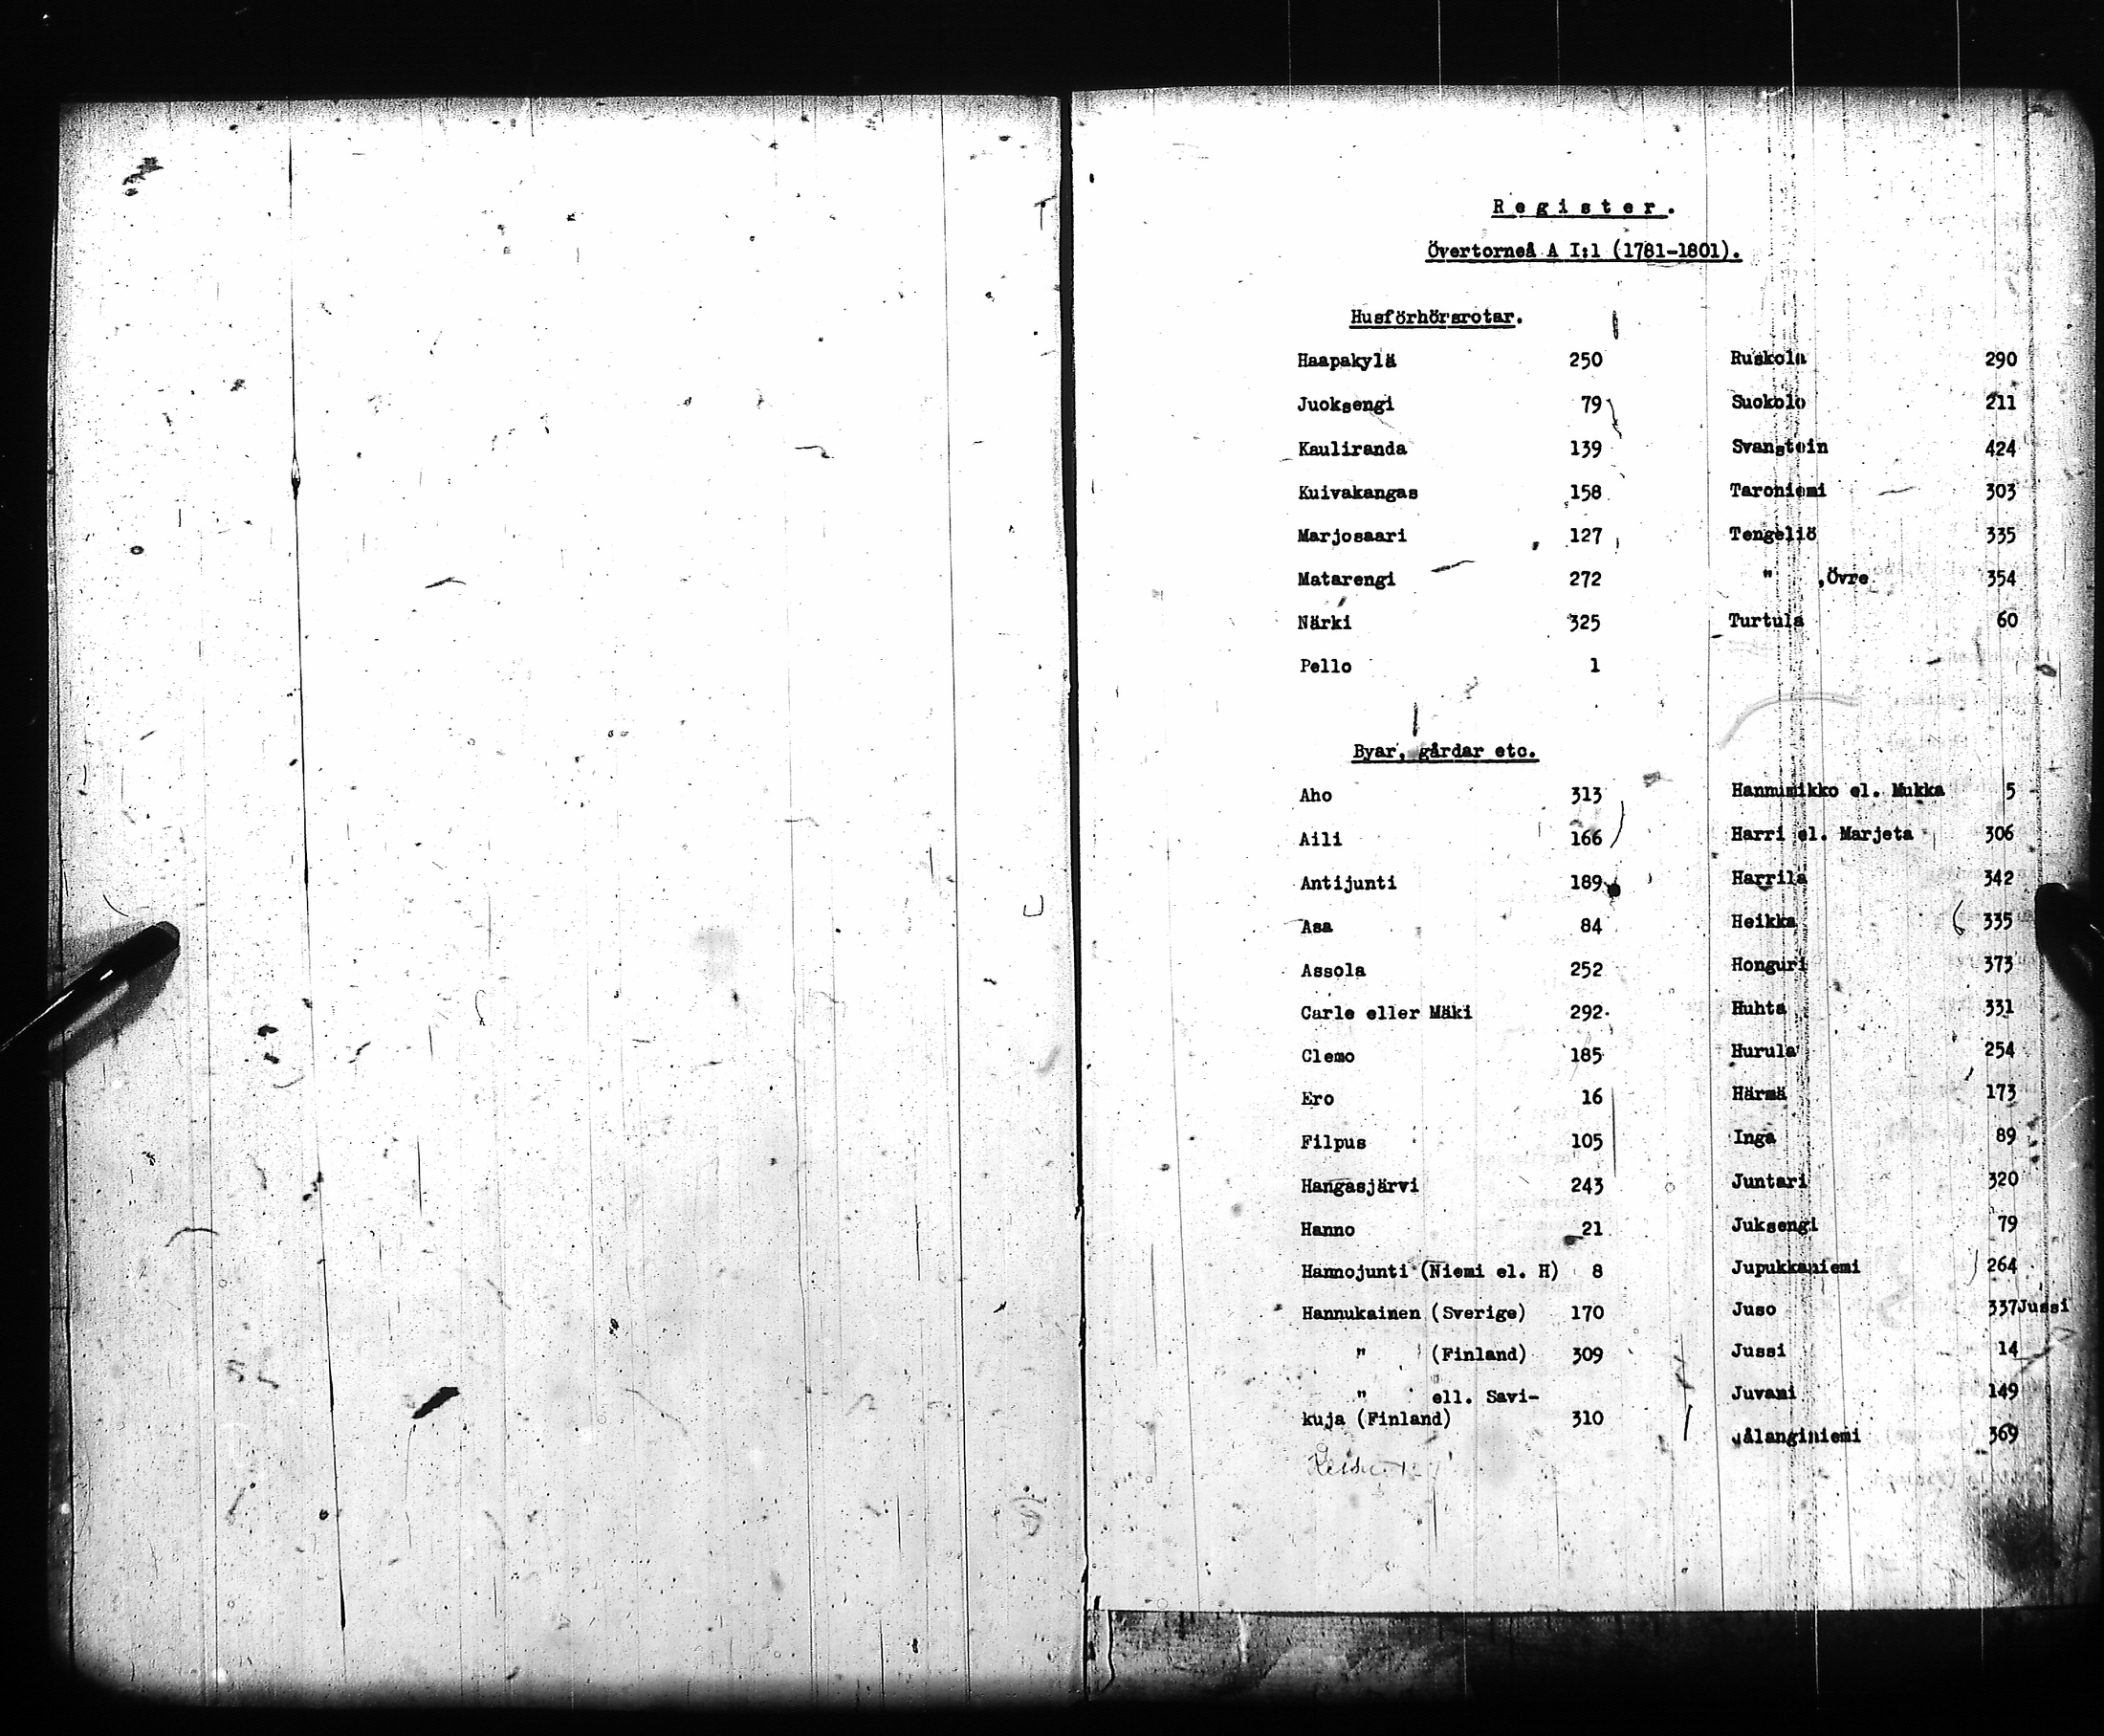 Register.
Övertorneå A I:1 (1781-1801).
Husförhörsrotar.
Haapakylä 250
Juoksengi 79
Kauliranda 139
Kuivakangas 158
Marjosaari 127
Matarengi 272
Närki 325
Pello 1
Ruskola 290
Suokolo 211
Svanstein 424
Taroniemi 303
Tengeliö 335
" ,Övre 354
Turtula 60
Byar, gårdar etc.
Aho 313
Aili 166
Antijunti 189
Asa 84
Assola 252
Carle eller Mäki 292
Clemo 185
Ero 16
Filpus 105
Hangasjärvi 243
Hanno 21
Hannojunti (Niemi el. H) 8
Hannukainen (Sverige) 170
" (Finland) 309
" ell. Savi-
kuja (Finland) 310
Hannumikko el. Mukka 5
Harri el. Marjeta 306
Harrila 342
Heikka 335
Honguri 373
Huhta 331
Hurula 254
Härmä 173
Inga 89
Juntari 320
Juksengi 79
Jupukkaniemi 264
Juso 337Jussi
Jussi 14
Juvani 149
Jålanginiemi 369